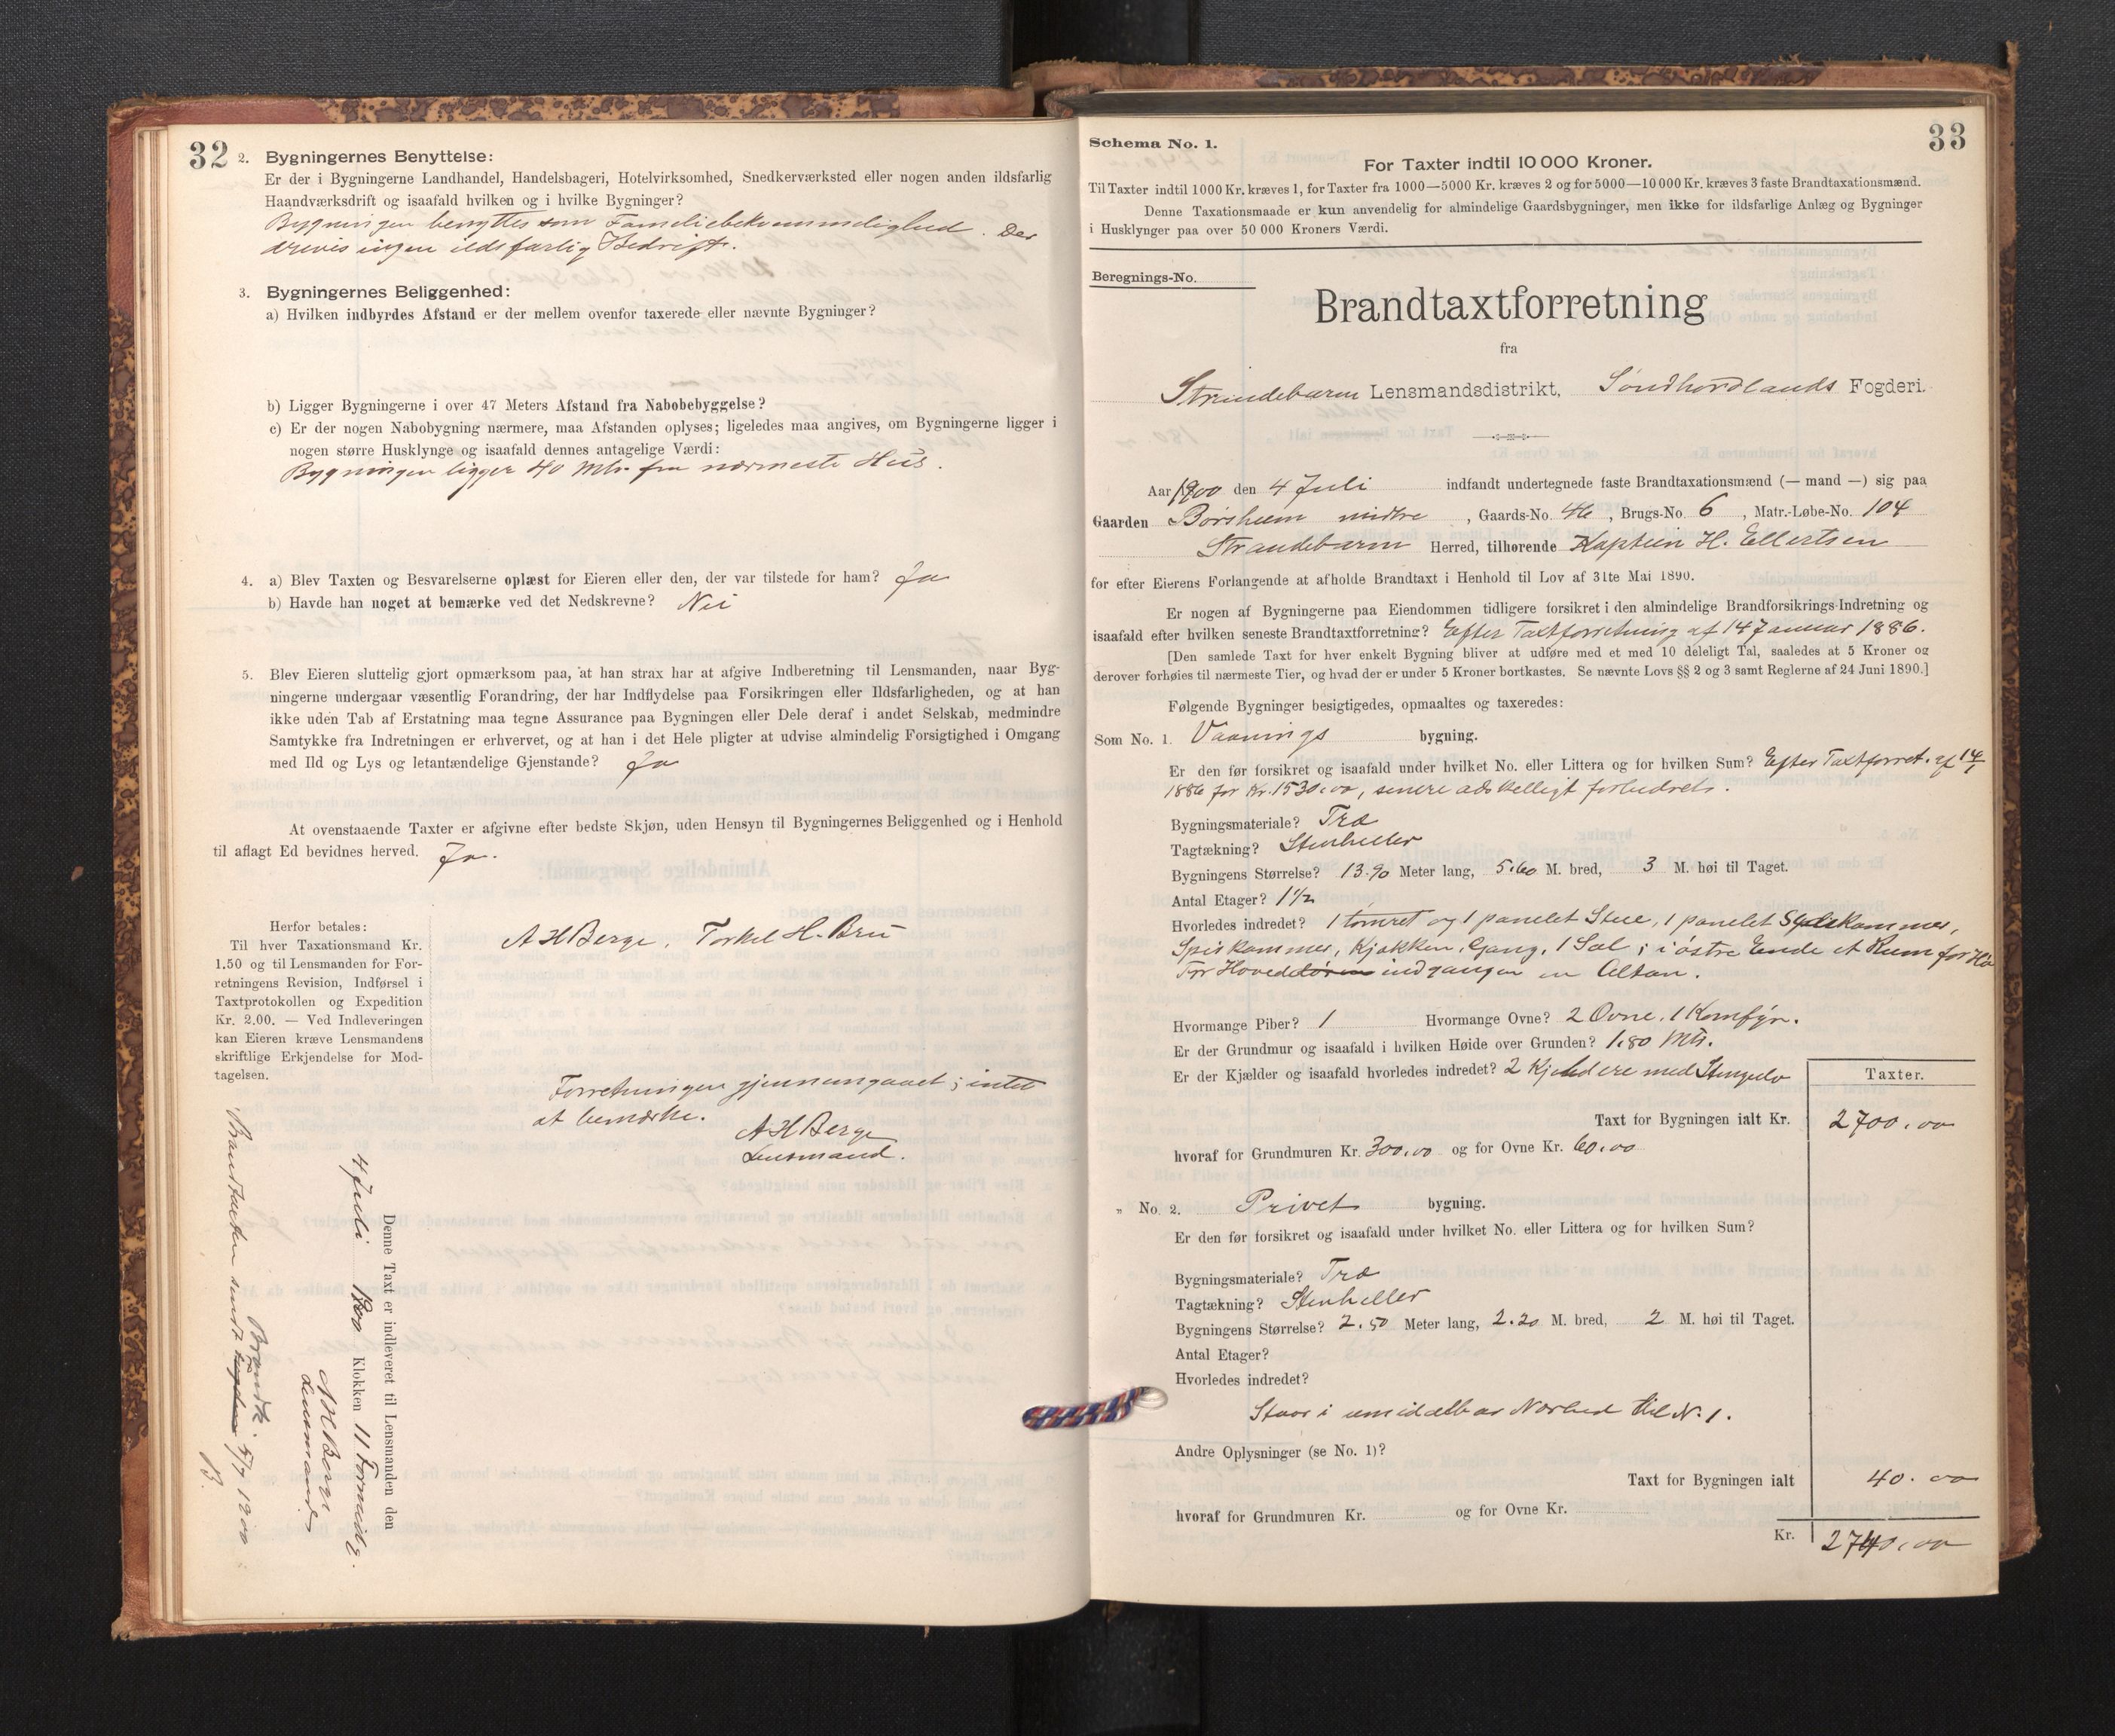 32
2. Bygningernes Benyttelse:
Er der i Bygningerne Landhandel, Handelsbageri, Hotelvirksomhed, Snedkerværksted eller nogen anden ildsfarlig
Haandværksdrift og isaafald hvilken og i hvilke Bygninger?
Bygningen benyttes som Familiebekvemmelighed. Der
drives ingen ildsfarlig Bedrift.
3. Bygningernes Beliggenhed:
a) Hvilken indbyrdes Afstand er der mellem ovenfor taxerede eller nævnte Bygninger?
b) Ligger Bygningerne i over 47 Meters Afstand fra Nabobebyggelse?
c) Er der nogen Nabobygning nærmere, maa Afstanden oplyses; ligeledes maa angives, om Bygningerne ligger i
nogen større Husklynge og isaafald dennes antagelige Værdi:
Bygningen ligger 40 Mtr. fra nærmeste Hus.
4. a) Blev Taxten og Besvarelserne oplæst for Eieren eller den, der var tilstede for ham? Ja
b) Havde han noget at bemærke ved det Nedskrevne? Nei
5. Blev Eieren sluttelig gjort opmærksom paa, at han strax har at afgive Indberetning til Lensmanden, naar Byg-
ningerne undergaar væsentlig Forandring, der har Indflydelse paa Forsikringen eller Ildsfarligheden, og at han
ikke uden Tab af Erstatning maa tegne Assurance paa Bygningen eller Dele deraf i andet Selskab, medmindre
Samtykke fra Indretningen er erhvervet, og at han i det Hele pligter at udvise almindelig Forsigtighed i Omgang
med Ild og Lys og letantændelige Gjenstande? Ja
At ovenstaaende Taxter er afgivne efter bedste Skjøn, uden Hensyn til Bygningernes Beliggenhed og i Henhold
til aflagt Ed bevidnes herved. Ja.
Herfor betales:
Til hver Taxationsmand Kr.
1.50 og til Lensmanden for For-
retningens Revision, Indførsel i
Taxtprotokollen og Expedition
Kr. 2.00. — Ved Indleveringen
kan Eieren kræve Lensmandens
skriftlige Erkjendelse for Mod-
tagelsen.
A H Berge. Torkel H. Bru
Forretningen gjennemgaaet; intet
at bemærke.
A H Berge
Lensmand.
Denne Taxt er indleveret til Lensmanden den
4 Juli 1900 Klokken 11 Formidg.
A H Berge
Lensmand
Brandk.
Brandtaxten sendt 5/7 1900
B.
33
Schema No. 1.
For Taxter indtil 10 000 Kroner.
Til Taxter indtil 1000 Kr. kræves 1, for Taxter fra 1000—5000 Kr. kræves 2 og for 5000—10000 Kr. kræves 3 faste Brandtaxationsmænd.
Denne Taxationsmaade er kun anvendelig for almindelige Gaardsbygninger, men ikke for ildsfarlige Anlæg og Bygninger
i Husklynger paa over 50 000 Kroners Værdi.
Beregnings-No.
Brandtaxtforretning
fra
Strandebarm Lensmandsdistrikt, Søndhordlands Fogderi.
Aar 1900 den 4 Juli indfandt undertegnede faste Brandtaxationsmænd (— mand —) sig paa
Gaarden Børsheim midtre, Gaards-No. 46, Brugs-No. 6, Matr.-Løbe-No. 104
Strandebarm Herred, tilhørende Kaptein H. Ellertsen
for efter Eierens Forlangende at afholde Brandtaxt i Henhold til Lov af 31te Mai 1890.
Er nogen af Bygningerne paa Eiendommen tidligere forsikret i den almindelige Brandforsikrings-Indretning og
isaafald efter hvilken seneste Brandtaxtforretning? Efter Taxtforretning af 14 Januar 1886.
[Den samlede Taxt for hver enkelt Bygning bliver at udføre med et med 10 deleligt Tal, saaledes at 5 Kroner og
derover forhøies til nærmeste Tier, og hvad der er under 5 Kroner bortkastes. Se nævnte Lovs §§ 2 og 3 samt Reglerne af 24 Juni 1890.]
Følgende Bygninger besigtigedes, opmaaltes og taxeredes:
Som No. 1. Vaanings bygning.
Er den før forsikret og isaafald under hvilket No. eller Littera og for hvilken Sum? Efter Taxtforret. af 14/1
1886 for Kr. 1530,00, senere adskelligt forbedret.
Bygningsmateriale? Træ
Tagtækning? Stenheller
Bygningens Størrelse? 13.90 Meter lang, 5.60 M. bred, 3 M. høi til Taget.
Antal Etager? 1½
Hvorledes indredet? 1 tømret og 1 panelet Stue, 1 panelet Sydskammer,
Spiskammer, Kjøkken, Gang, 1 Sal; i østre Ende et Rum for Hø
For Hoveddøren indgangen en Altan.
Hvormange Piber? 1 Hvormange Ovne? 2 Ovne, 1 Komfyr.
Er der Grundmur og isaafald i hvilken Høide over Grunden? 1.80 Mtr.
Er der Kjælder og isaafald hvorledes indredet? 2 Kjeldere med Stengulv
Taxter.
Taxt for Bygningen ialt Kr. 2700,00
hvoraf for Grundmuren Kr. 300,00 og for Ovne Kr. 60,00
" No. 2. Privet bygning.
Er den før forsikret og isaafald under hvilket No. eller Littera og for hvilken Sum?
Bygningsmateriale? Træ
Tagtækning? Stenheller
Bygningens Størrelse? 2.50 Meter lang, 2.20 M. bred, 2 M. høi til Taget.
Antal Etager?
Hvorledes indredet?
Staar i umiddelbar Nærhed til N. 1.
Andre Oplysninger (se No. 1)?
Taxt for Bygningen ialt 40.00
hvoraf for Grundmuren Kr. og for Ovne Kr.
Kr. 2740,00